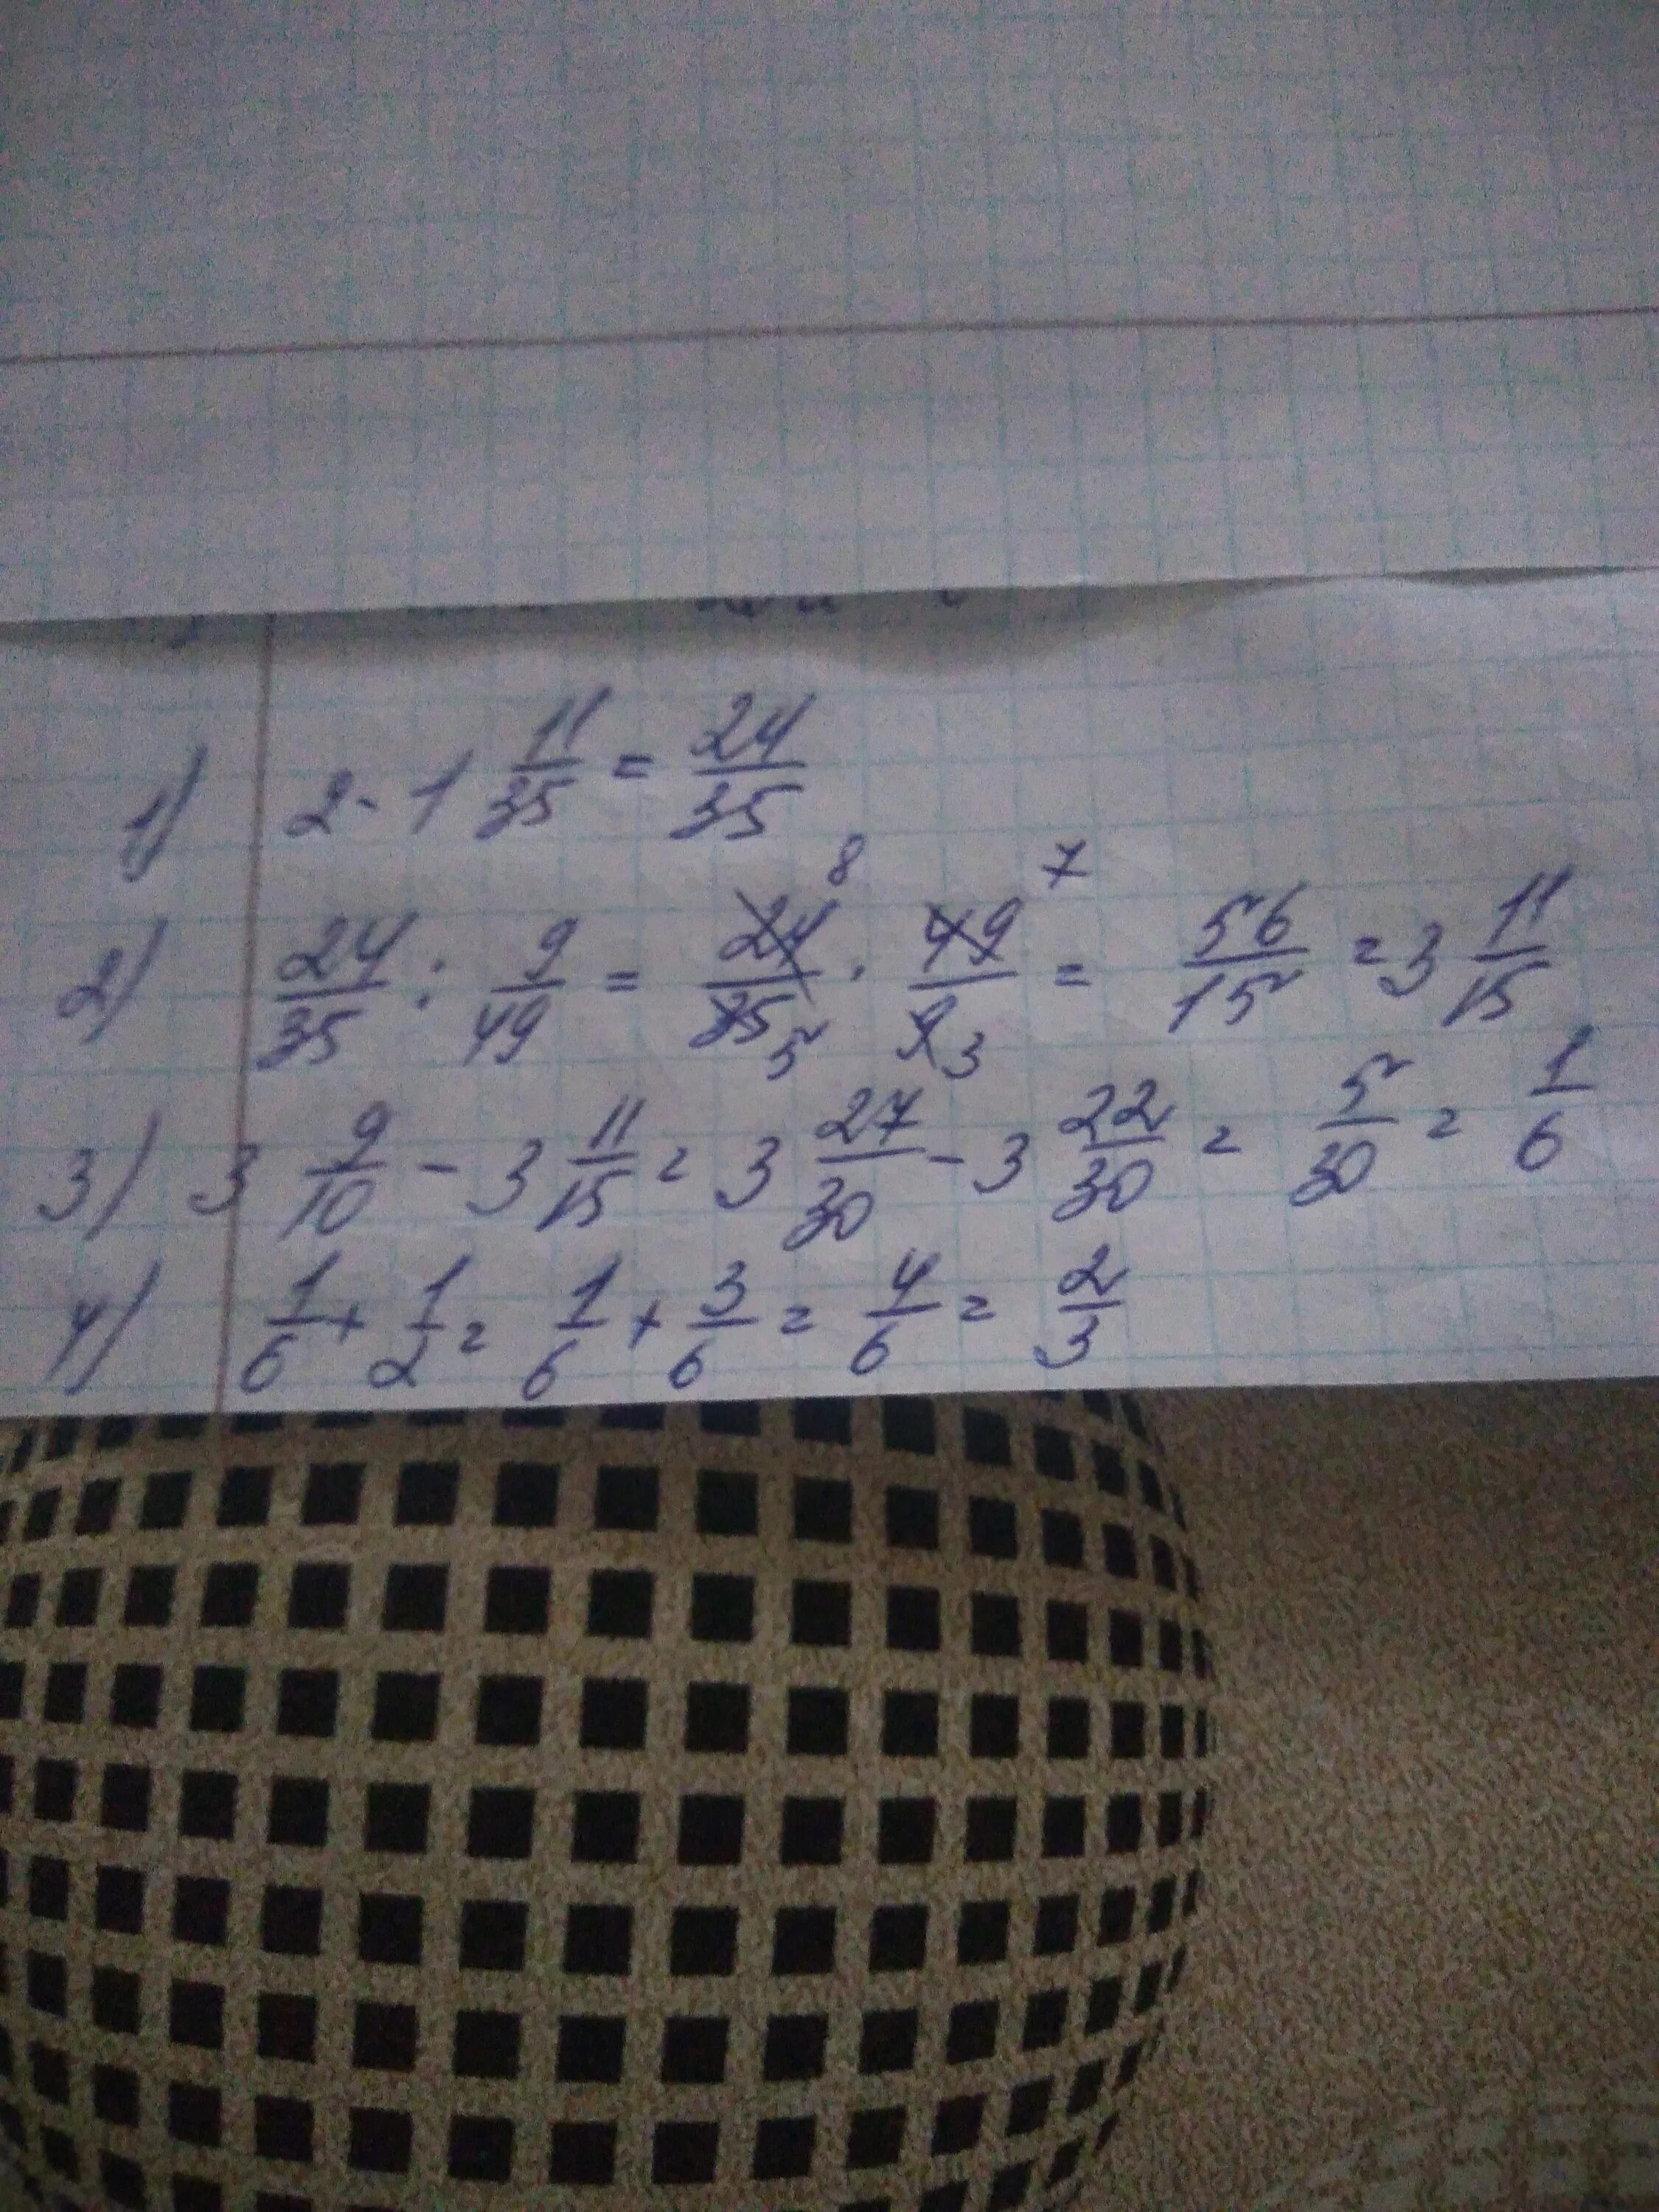 1) 2 - 1 11/35 = 24/35
2) 24/35 : 9/49 = 24/35 8 5 · 49/9 7 3 = 56/15 = 3 11/15
3) 3 9/10 - 3 11/15 = 3 27/30 - 3 22/30 = 5/30 = 1/6
4) 1/6 + 1/2 = 1/6 + 3/6 = 4/6 = 2/3